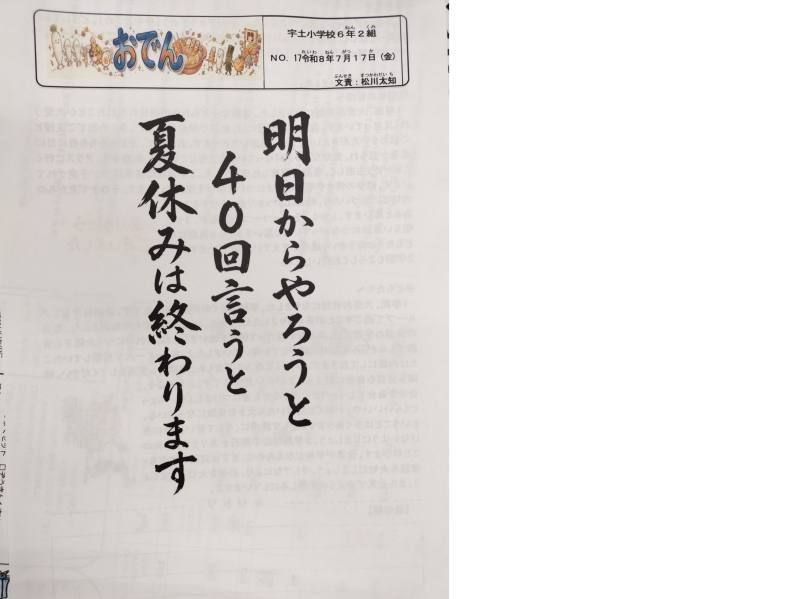 おでん
宇土小学校６年２組
NO．17令和8年7月17日（金）
文責：松川太知
明日からやろうと
４０回言うと
夏休みは終わります